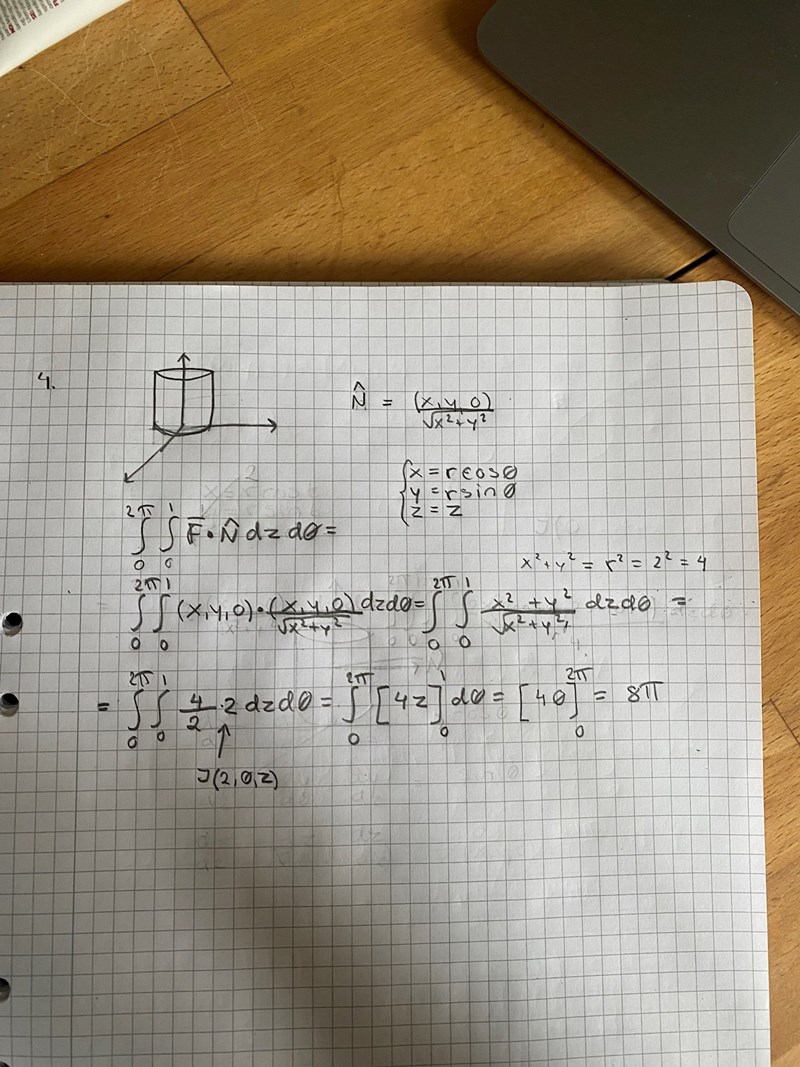 4.
N̂ = (x, y, 0) / √x²+y²
{ x = r cosθ
y = r sinθ
z = z
∫₀^2π ∫₀^1 F̄ • N̂ dz dθ =
x² + y² = r² = 2² = 4
∫₀^2π ∫₀^1 (x, y, 0) • (x, y, 0) / √x²+y² dz dθ = ∫₀^2π ∫₀^1 x² + y² / √x²+y² dz dθ =
= ∫₀^2π ∫₀^1 4/2 · 2 dz dθ = ∫₀^2π [4z]₀^1 dθ = [4θ]₀^2π = 8π
↑
J(2, θ, z)